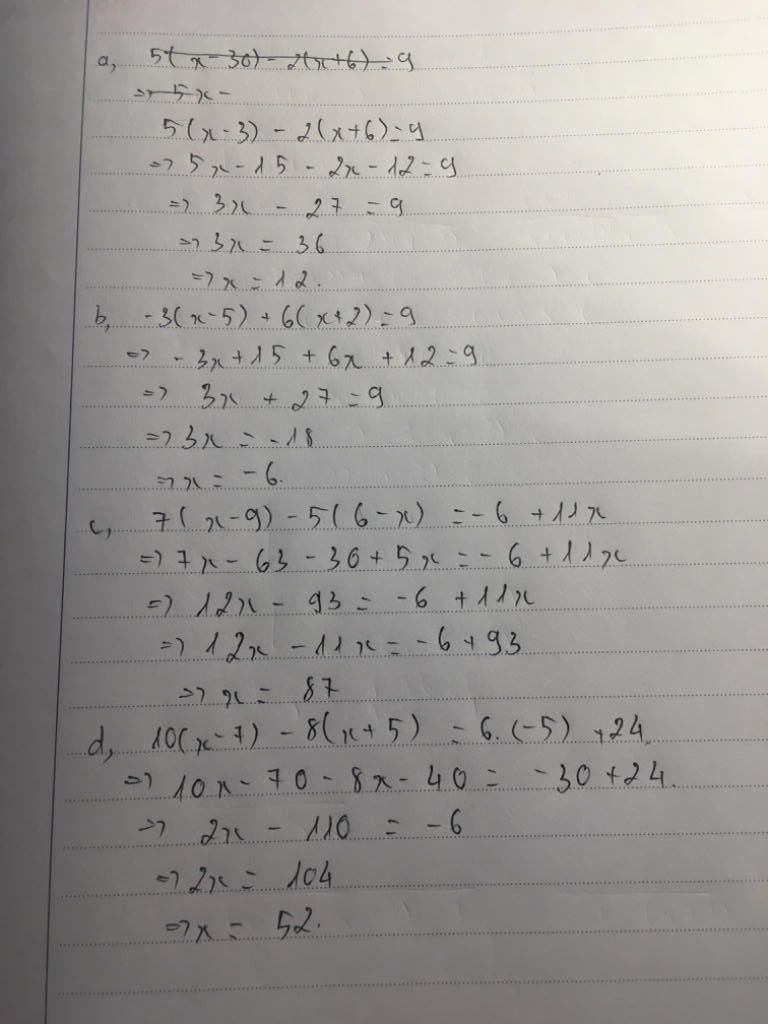 a, 5(x-30) - 2(x+6) = 9
=> 5x -
5(x-3) - 2(x+6) = 9
=> 5x - 15 - 2x - 12 = 9
=> 3x - 27 = 9
=> 3x = 36
=> x = 12.
b, -3(x-5) + 6(x+2) = 9
=> -3x + 15 + 6x + 12 = 9
=> 3x + 27 = 9
=> 3x = -18
=> x = -6.
c, 7(x-9) - 5(6-x) = -6 + 11x
=> 7x - 63 - 30 + 5x = -6 + 11x
=> 12x - 93 = -6 + 11x
=> 12x - 11x = -6 + 93
=> x = 87
d, 10(x-7) - 8(x+5) = 6.(-5) + 24.
=> 10x - 70 - 8x - 40 = -30 + 24.
=> 2x - 110 = -6
=> 2x = 104
=> x = 52.